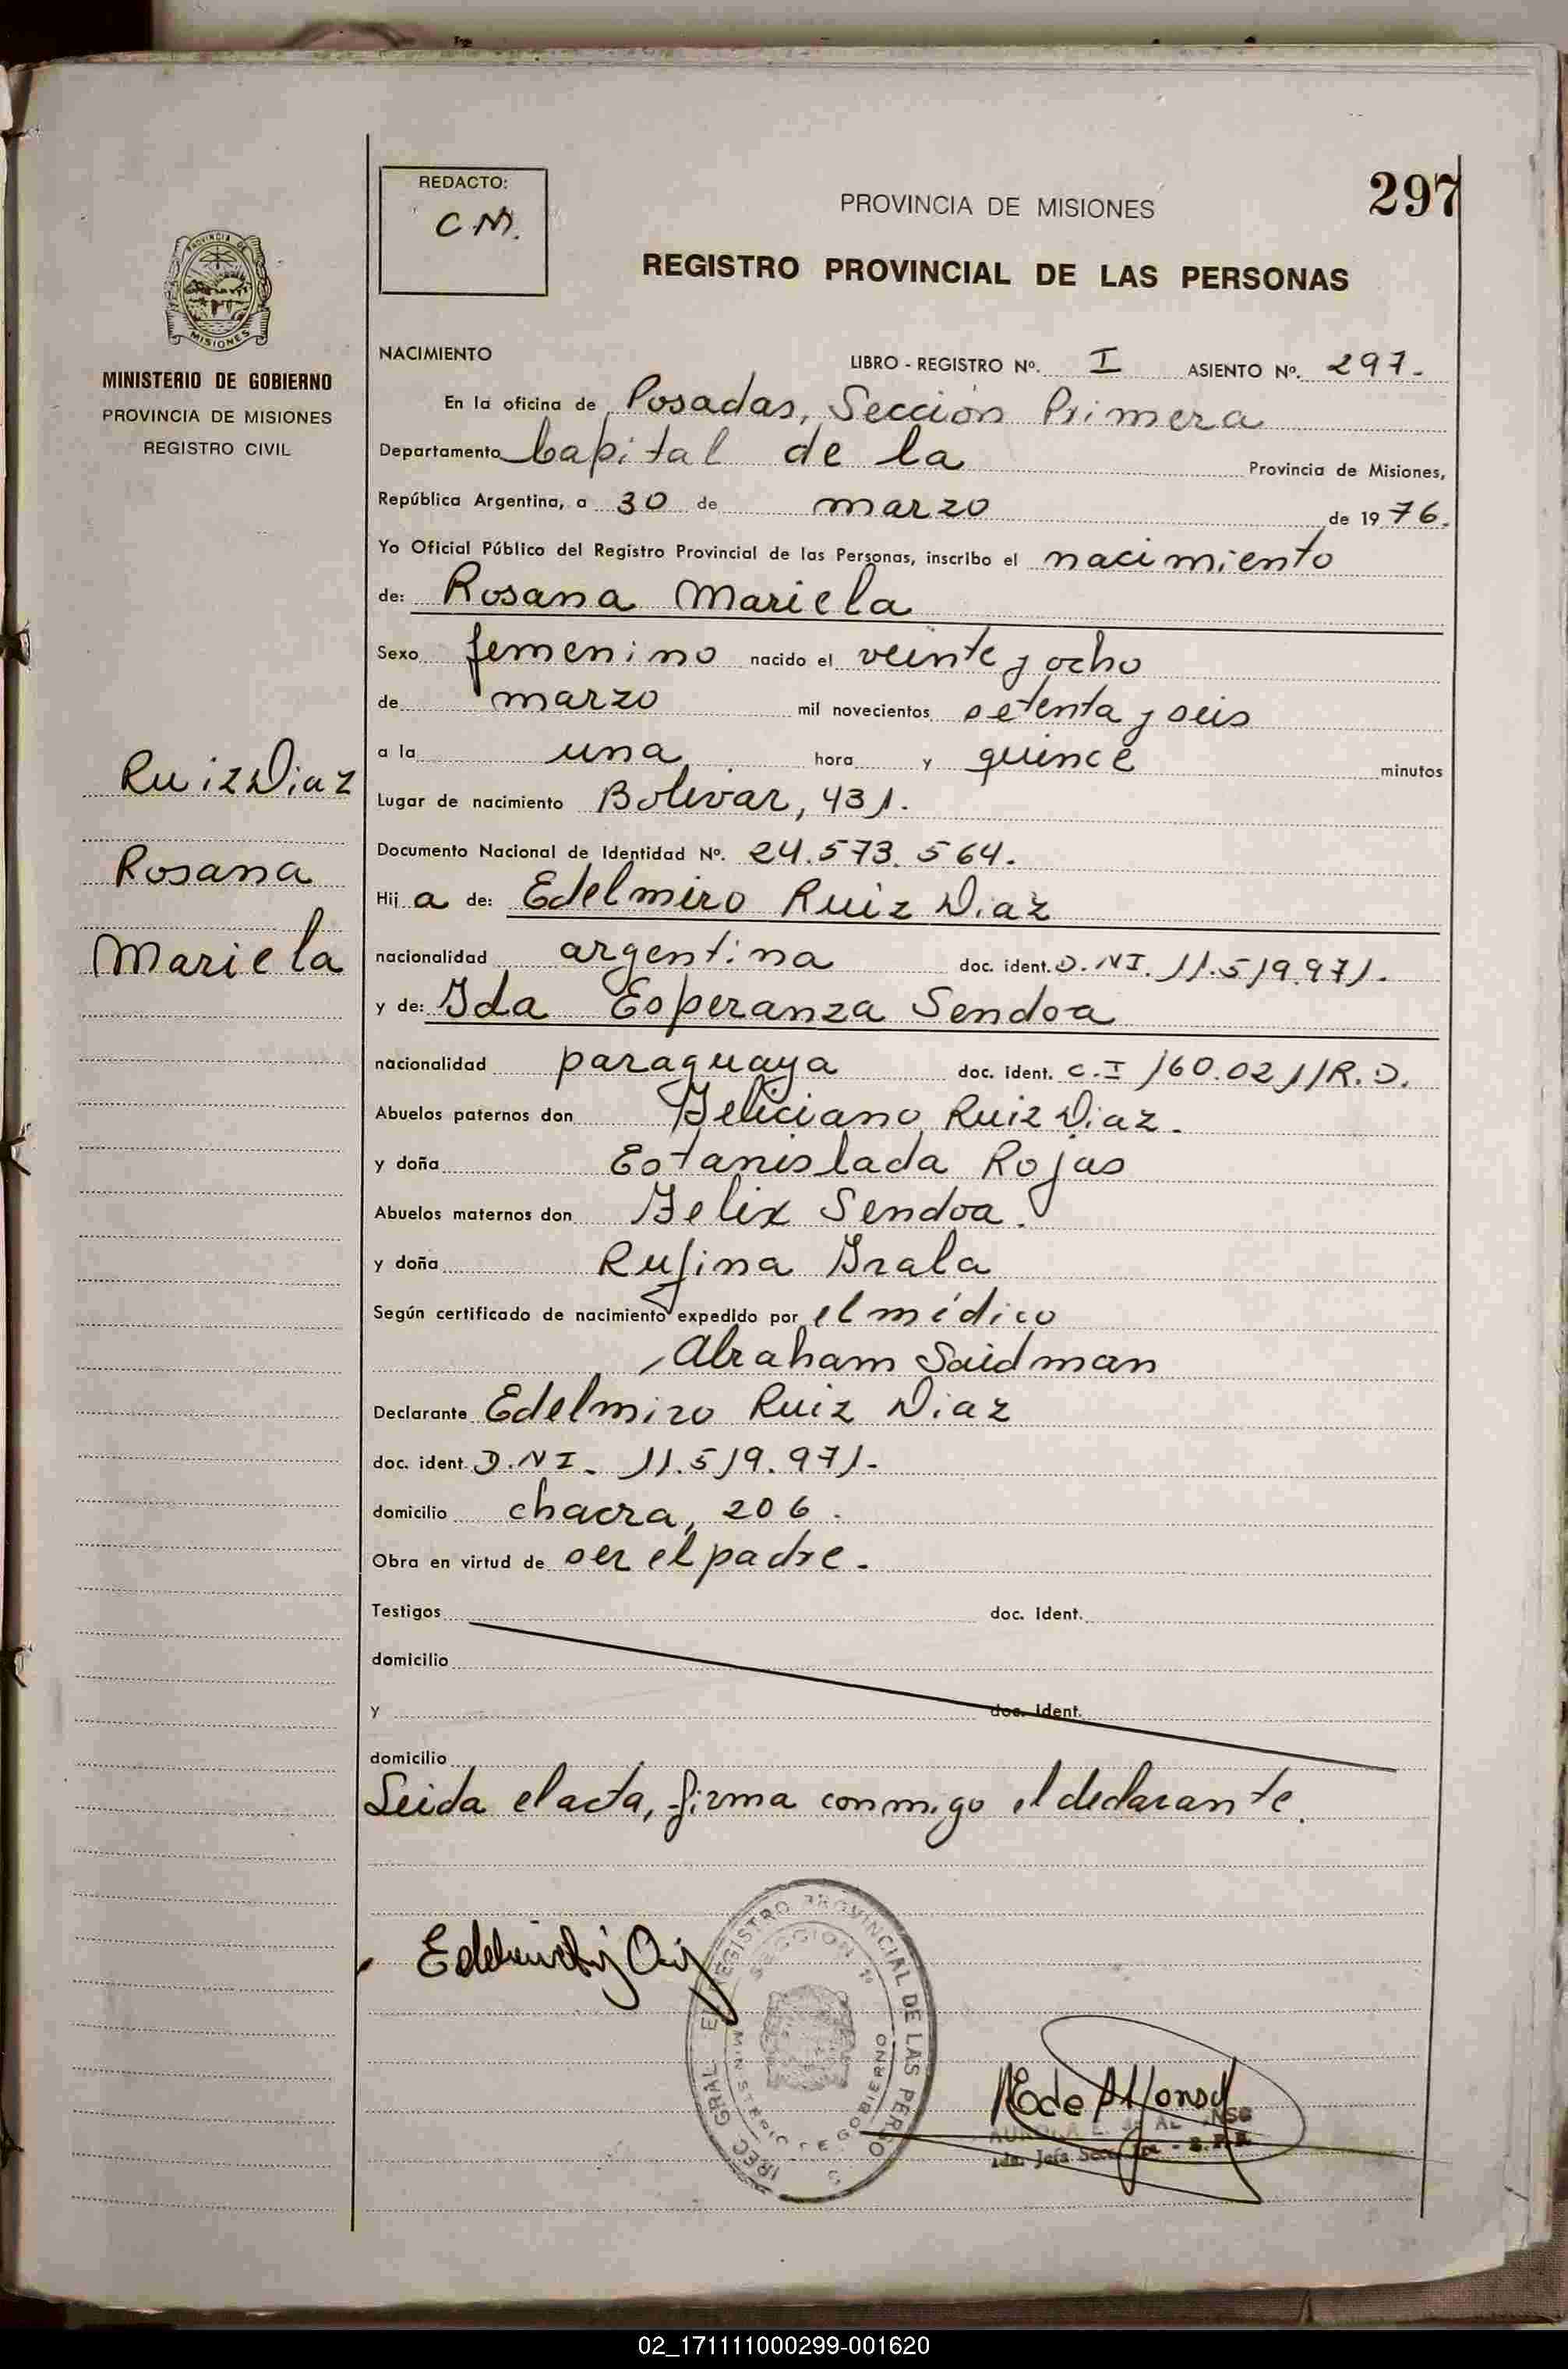 297
REDACTO:
C M.
PROVINCIA DE MISIONES
REGISTRO PROVINCIAL DE LAS PERSONAS
PROVINCIA DE
MISIONES
MINISTERIO DE GOBIERNO
PROVINCIA DE MISIONES
REGISTRO CIVIL
Ruiz Diaz
Rosana
Mariela
NACIMIENTO LIBRO - REGISTRO Nº. I ASIENTO Nº. 297.
En la oficina de Posadas, Sección Primera
Departamento Capital de la Provincia de Misiones,
República Argentina, a 30 de marzo de 1976.
Yo Oficial Público del Registro Provincial de las Personas, inscribo el nacimiento
de: Rosana Mariela
Sexo femenino nacido el veinte y ocho
de marzo mil novecientos setenta y seis
a la una hora y quince minutos
Lugar de nacimiento Bolivar, 431.
Documento Nacional de Identidad Nº. 24.573.564.
Hij a de: Edelmiro Ruiz Diaz
nacionalidad argentina doc. ident. D.NI. 11.519.971.
y de: Ida Esperanza Sendoa
nacionalidad paraguaya doc. ident. C.I 160.021/R.D.
Abuelos paternos don Feliciano Ruiz Diaz.
y doña Estanislada Rojas
Abuelos maternos don Felix Sendoa.
y doña Rufina Irala
Según certificado de nacimiento expedido por el médico
Abraham Saidman
Declarante Edelmiro Ruiz Diaz
doc. ident. D.NI. 11.519.971.
domicilio chacra, 206.
Obra en virtud de ser el padre.
Testigos doc. ident.
domicilio
y doc. ident.
domicilio
Leida el acta, firma conmigo el declarante.
REGISTRO PROVINCIAL DE LAS PERSO
SECCION 1ª
MINISTERIO DE GOBIERNO
02_171111000299-001620